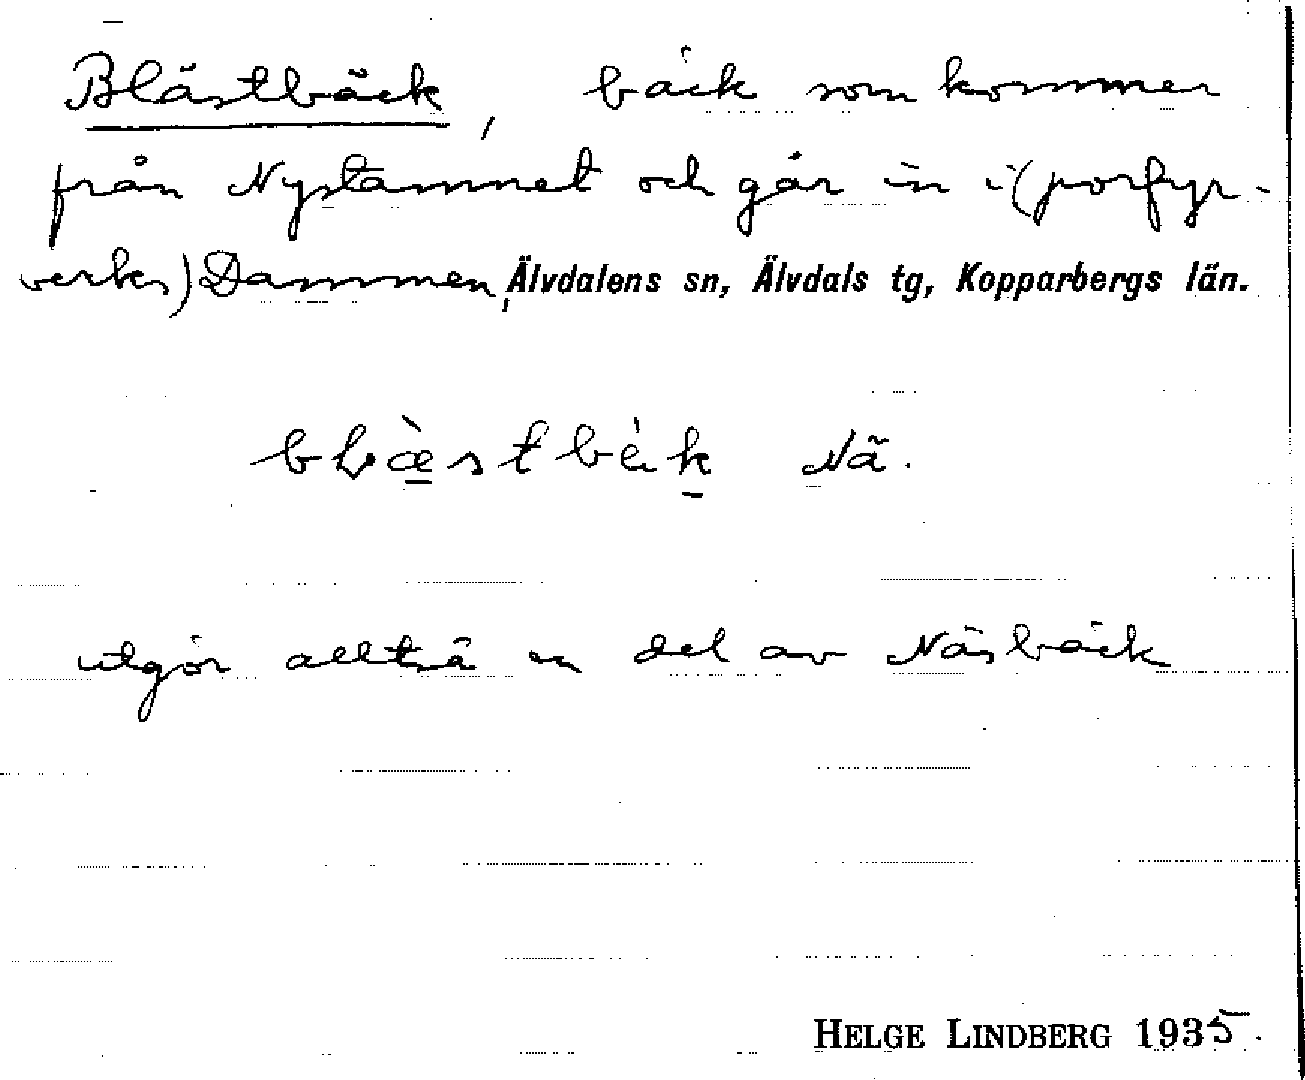 Blästbäck, bäck som kommer
från Nystamnet och går in i (porfyr-
verks) Dammen, Älvdalens sn, Älvdals tg, Kopparbergs län.
Nä.
utgör alltså en del av Näsbäck
HELGE LINDBERG 1935.